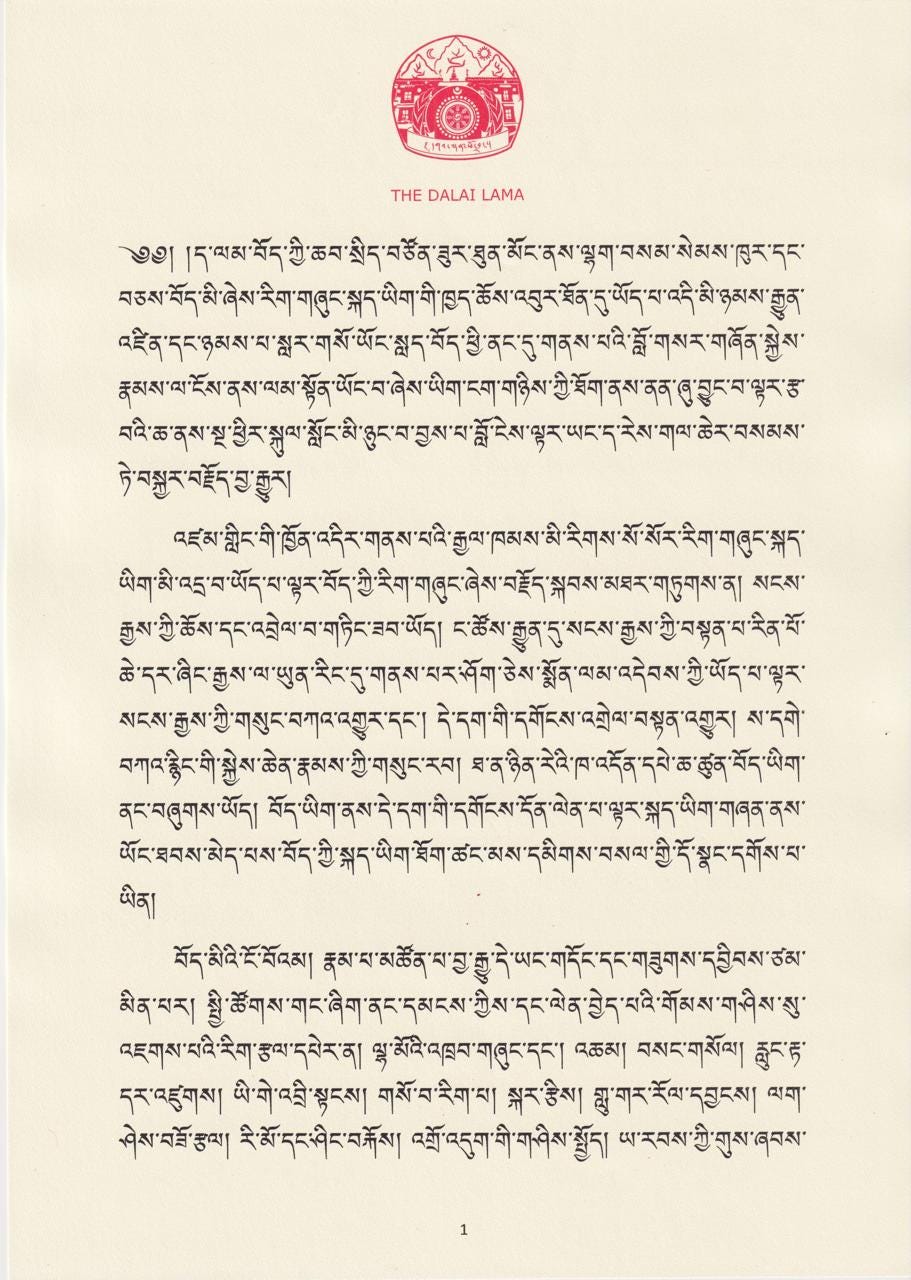 THE DALAI LAMA
༄༅། །ད་ལམ་བོད་ཀྱི་ཆབ་སྲིད་བཙོན་ཟུར་ཐུན་མོང་ནས་ལྷག་བསམ་སེམས་ཁུར་དང་
བཅས་བོད་མི་ཞེས་རིག་གཞུང་སྐད་ཡིག་གི་ཁྱད་ཆོས་འབུར་ཐོན་དུ་ཡོད་པ་འདི་མི་ཉམས་རྒྱུན་
འཛིན་དང་ཉམས་པ་སླར་གསོ་ཡོང་སླད་བོད་ཕྱི་ནང་དུ་གནས་པའི་བློ་གསར་གཞོན་སྐྱེས་
རྣམས་ལ་ངོས་ནས་ལམ་སྟོན་ཡོང་བ་ཞེས་ཡིག་ངག་གཉིས་ཀྱི་ཐོག་ནས་ནན་ཞུ་བྱུང་བ་ལྟར་རྩ་
བའི་ཆ་ནས་སྔ་ཕྱིར་སྐུལ་སློང་མི་ཉུང་བ་བྱས་པ་བློ་ངེས་ལྟར་ཡང་ད་རེས་གལ་ཆེར་བསམས་
ཏེ་བསྐྱར་བརྗོད་བྱ་རྒྱུར།
འཛམ་གླིང་གི་ཁྱོན་འདིར་གནས་པའི་རྒྱལ་ཁམས་མི་རིགས་སོ་སོར་རིག་གཞུང་སྐད་
ཡིག་མི་འདྲ་བ་ཡོད་པ་ལྟར་བོད་ཀྱི་རིག་གཞུང་ཞེས་བརྗོད་སྐབས་མཐར་གཏུགས་ན། སངས་
རྒྱས་ཀྱི་ཆོས་དང་འབྲེལ་བ་གཏིང་ཟབ་ཡོད། ང་ཚོས་རྒྱུན་དུ་སངས་རྒྱས་ཀྱི་བསྟན་པ་རིན་པོ་
ཆེ་དར་ཞིང་རྒྱས་ལ་ཡུན་རིང་དུ་གནས་པར་ཤོག་ཅེས་སྨོན་ལམ་འདེབས་ཀྱི་ཡོད་པ་ལྟར་
སངས་རྒྱས་ཀྱི་གསུང་བཀའ་འགྱུར་དང་། དེ་དག་གི་དགོངས་འགྲེལ་བསྟན་འགྱུར། ས་དགེ་
བཀའ་རྙིང་གི་སྐྱེས་ཆེན་རྣམས་ཀྱི་གསུང་རབ། ཐ་ན་ཉིན་རེའི་ཁ་འདོན་དཔེ་ཆ་ཚུན་བོད་ཡིག་
ནང་བཞུགས་ཡོད། བོད་ཡིག་ནས་དེ་དག་གི་དགོངས་དོན་ལེན་པ་ལྟར་སྐད་ཡིག་གཞན་ནས་
ཡོང་ཐབས་མེད་པས་བོད་ཀྱི་སྐད་ཡིག་ཐོག་ཚང་མས་དམིགས་བསལ་གྱི་དོ་སྣང་དགོས་པ་
ཡིན།
བོད་མིའི་ངོ་བོའམ། རྣམ་པ་མཚོན་པ་བྱ་རྒྱུ་དེ་ཡང་གདོང་དང་གཟུགས་དབྱིབས་ཙམ་
མིན་པར། སྤྱི་ཚོགས་གང་ཞིག་ནང་དམངས་ཀྱིས་དང་ལེན་བྱེད་པའི་གོམས་གཤིས་སུ་
འཇགས་པའི་རིག་རྩལ་དཔེར་ན། ལྷ་མོའི་འཁྲབ་གཞུང་དང་། འཆམ། བསང་གསོལ། རླུང་རྟ་
དར་འཛུགས། ཡི་གེ་འབྲི་སྟངས། གསོ་བ་རིག་པ། སྐར་རྩིས། གླུ་གར་རོལ་དབྱངས། ལག་
ཤེས་བཟོ་རྩལ། རི་མོ་དང་ཤིང་བརྐོས། འགྲོ་འདུག་གི་གཤིས་སྤྱོད། ཡ་རབས་ཀྱི་གུས་ཞབས་
1